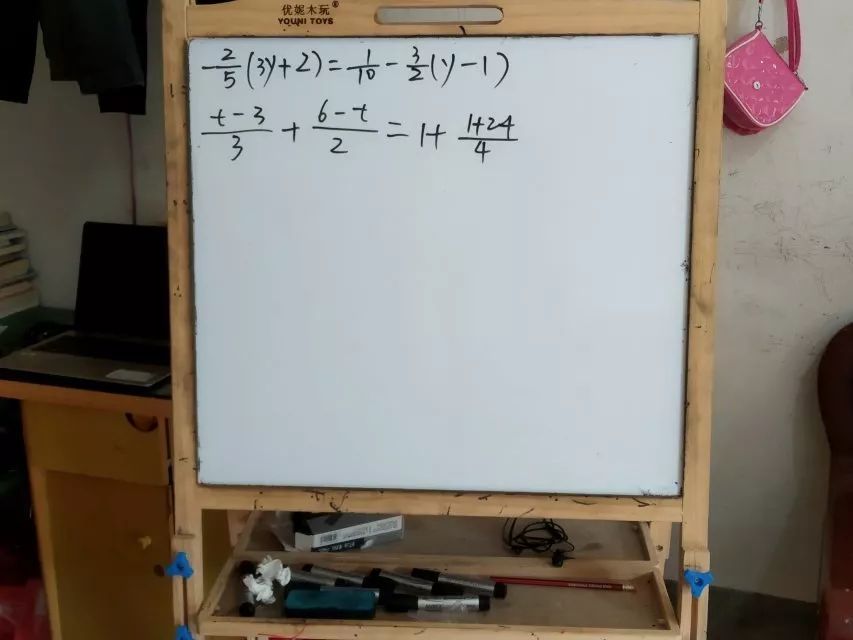 优妮木玩®
YOUNI TOYS
-2/5(3y+2)=1/10-3/2(y-1)
(t-3)/3+(6-t)/2=1+(1+24)/4